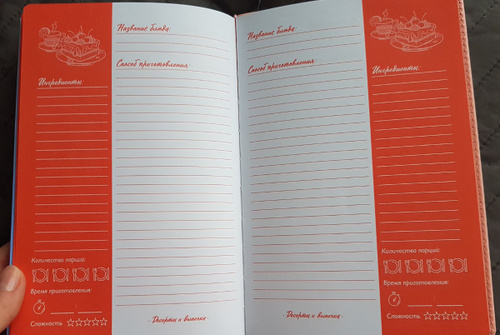 Название блюда:
Способ приготовления:
Ингредиенты:
Количество порций:
Время приготовления:
Сложность
- Десерты и выпечка -
Название блюда:
Способ приготовления:
Ингредиенты:
Количество порций:
Время приготовления:
Сложность
- Десерты и выпечка -